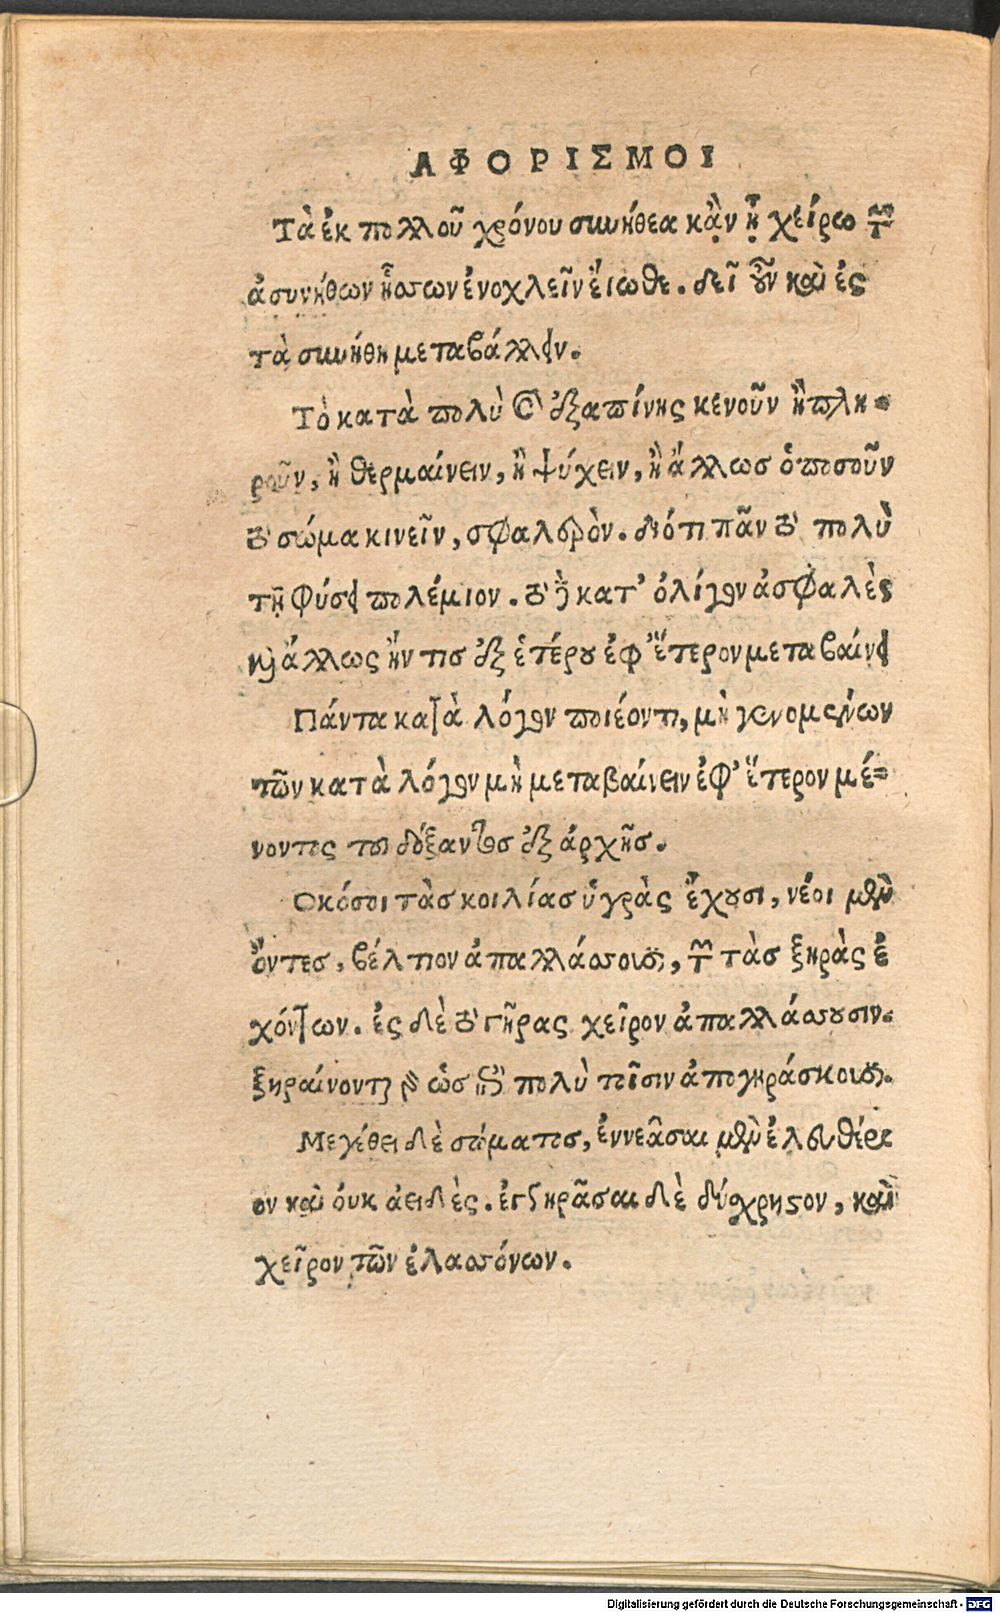 ΑΦΟΡΙΣΜΟΙ
Τὰ ἐκ πολλοῦ χρόνου συνήθεα κἂν ᾖ χείρω τῶν
ἀσυνήθων ἧσσον ἐνοχλεῖν εἴωθε. δεῖ οὖν καὶ ἐς
τὰ συνήθη μεταβάλλειν.
Τὸ κατὰ πολὺ καὶ ἐξαπίνης κενοῦν ἢ πλη-
ροῦν, ἢ θερμαίνειν, ἢ ψύχειν, ἢ ἄλλως ὁποσοῦν
τὸ σῶμα κινεῖν, σφαλερὸν. διότι πᾶν τὸ πολὺ
τῇ φύσει πολέμιον. τὸ δὲ κατ' ὀλίγον ἀσφαλὲς
καὶ ἄλλως ἤν τις ἐξ ἑτέρου ἐφ' ἕτερον μεταβαίνει
Πάντα κατὰ λόγον ποιέοντι, μὴ γενομένων
τῶν κατὰ λόγον μὴ μεταβαίνειν ἐφ' ἕτερον μέ-
νοντος τοῦ δόξαντος ἐξ ἀρχῆς.
Οκόσοι τὰς κοιλίας ὑγρὰς ἔχουσι, νέοι μὲν
ὄντες, βέλτιον ἀπαλλάσσουσι, τῶν τὰς ξηρὰς ἐ
χόντων. ἐς δὲ τὸ γῆρας χεῖρον ἀπαλλάσσουσιν.
ξηραίνονται γὰρ ὡς ἐπὶ τὸ πολὺ τοῖσιν ἀπογηράσκουσι.
Μεγέθει δὲ σώματος, ἐννεᾶσαι μὲν ἐλευθέρι
ον καὶ οὐκ ἀειδὲς. ἐγγηρᾶσαι δὲ δύσχρηστον, καὶ
χεῖρον τῶν ἐλασσόνων.
Digitalisierung gefördert durch die Deutsche Forschungsgemeinschaft - DFG